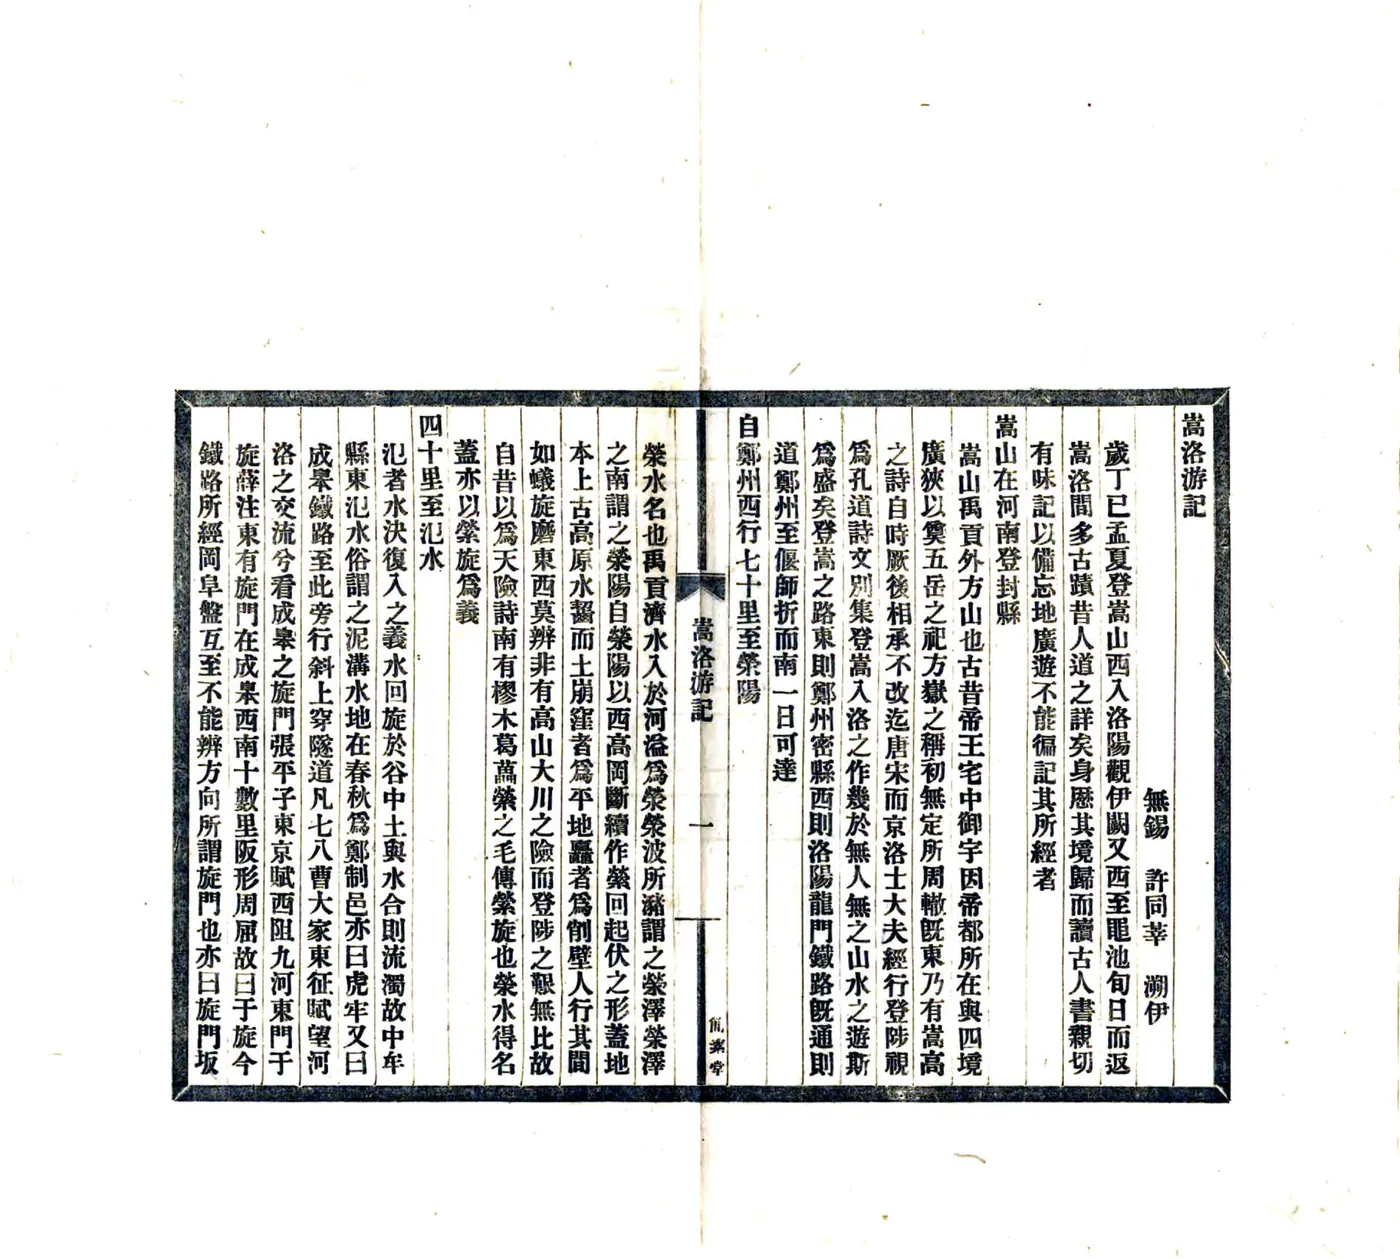 嵩洛游記
無錫 許同莘 溯伊
歲丁巳孟夏登嵩山西入洛陽觀伊闕又西至黽池旬日而返
嵩洛間多古蹟昔人道之詳矣身歷其境歸而讀古人書親切
有味記以備忘地廣遊不能徧記其所經者
嵩山在河南登封縣
嵩山禹貢外方山也古昔帝王宅中御宇因帝都所在與四境
廣狹以奠五岳之祀方嶽之稱初無定所周轍旣東乃有嵩高
之詩自時厥後相承不改迄唐宋而京洛士大夫經行登陟視
爲孔道詩文別集登嵩入洛之作幾於無人無之山水之遊斯
爲盛矣登嵩之路東則鄭州密縣西則洛陽龍門鐵路旣通則
道鄭州至偃師折而南一日可達
自鄭州西行七十里至滎陽
嵩洛游記
一
簡素堂
滎水名也禹貢濟水入於河溢爲滎滎波所瀦謂之滎澤滎澤
之南謂之滎陽自滎陽以西高岡斷續作縈回起伏之形蓋地
本上古高原水齧而土崩窪者爲平地矗者爲削壁人行其間
如蟻旋磨東西莫辨非有高山大川之險而登陟之艱無比故
自昔以爲天險詩南有樛木葛藟縈之毛傳縈旋也滎水得名
蓋亦以縈旋爲義
四十里至氾水
氾者水決復入之義水回旋於谷中土與水合則流濁故中牟
縣東氾水俗謂之泥溝水地在春秋爲鄭制邑亦曰虎牢又曰
成皋鐵路至此旁行斜上穿隧道凡七八曹大家東征賦望河
洛之交流兮看成皋之旋門張平子東京賦西阻九河東門于
旋薛注東有旋門在成皋西南十數里阪形周屈故曰于旋今
鐵路所經岡阜盤互至不能辨方向所謂旋門也亦曰旋門坂